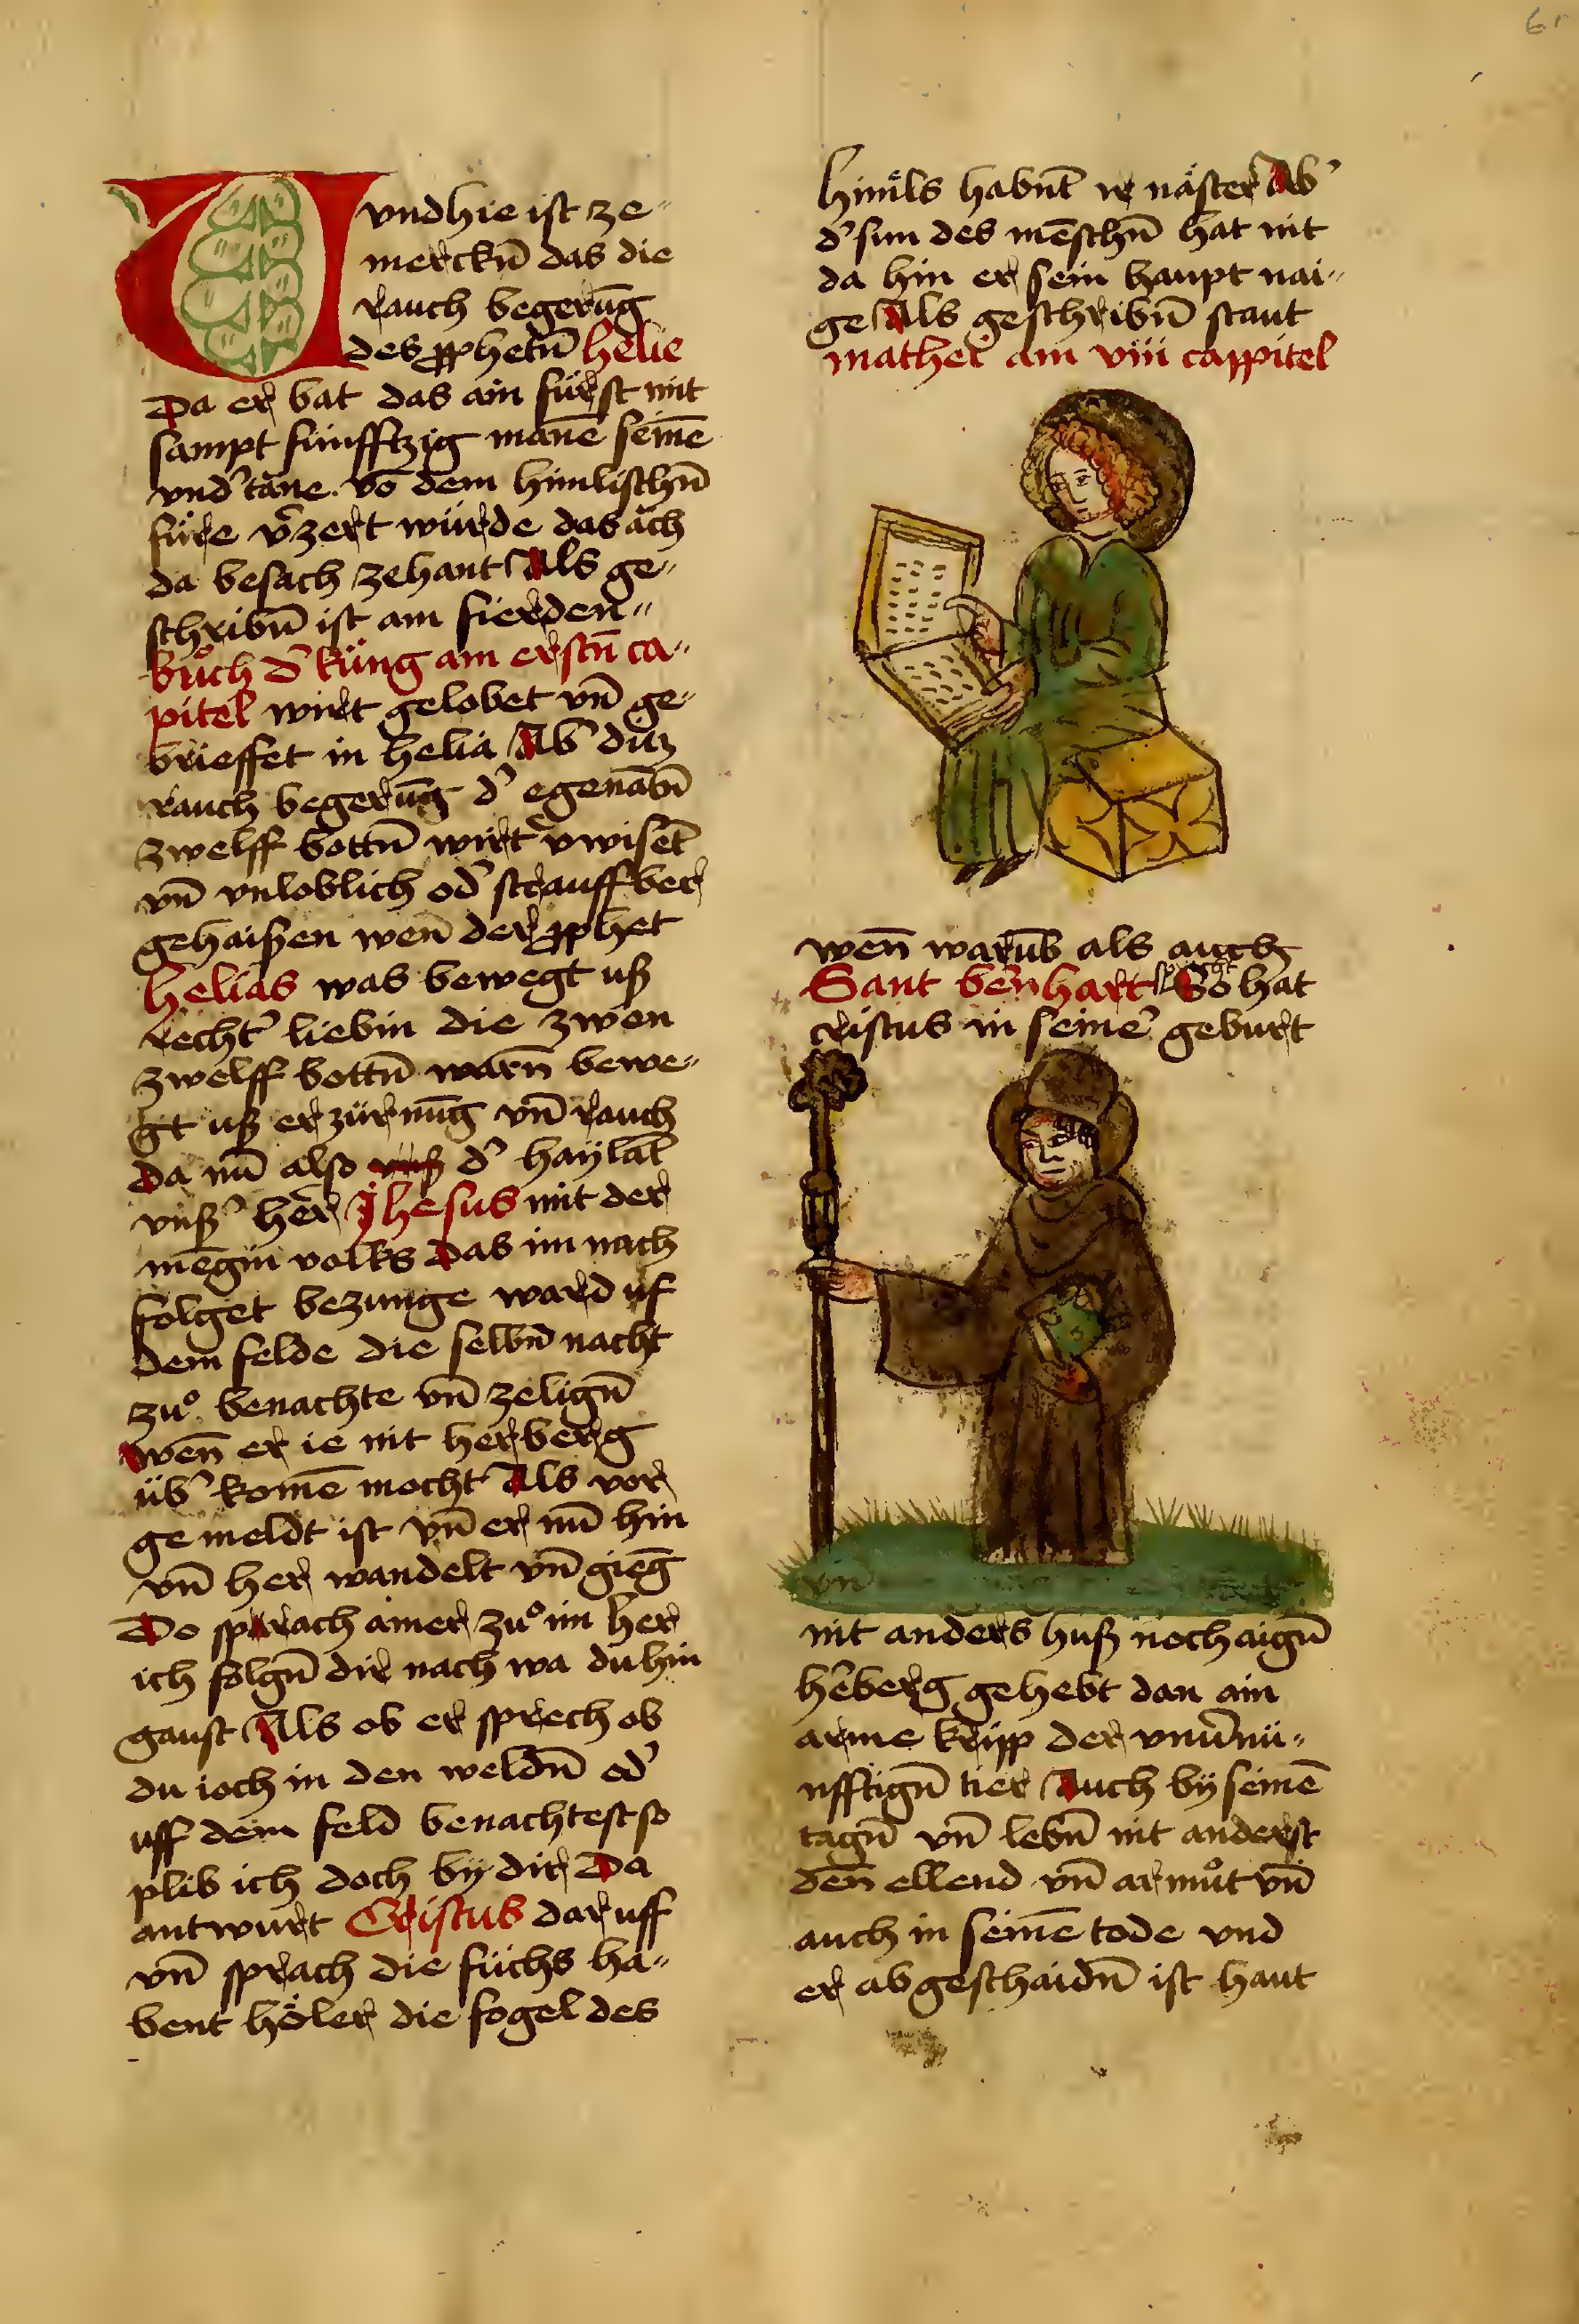 Vvnd hie ist ze-
merckn̄ das die
rauch begerūg
des ꝓphetn̄ helie
Da er bat das ain fürst mit
sampt fünfftzig mane᷑ seine᷑
vnd᷑tāne. vō dem himlischn̄
füre v᷑zert würde das ach
da besach zehant Als ge-
schribn̄ ist am fierden-
bůch d᷑ küng am erstn̄ ca-
pitel wirt gelobet vn̄ ge-
brieffet in helia Ab᷑ diß
rauch begerūg d᷑ egenābn̄
zwelff bottn̄ wirt v᷑wiset
vn̄ vnloblich od᷑ strauffber
gehaißen wen̄ der ꝓphet
helias was bewegt uß
recht᷑ liebin die zwen
zwelff bottn̄ warn̄ bewe-
gt uß erzürnūg vn̄ rauch
Da nū also d᷑ haylāt
vnß᷑ her̄ Jhesus mit der
mēgin volks das im nach
folget bezunge ward uf
dem felde die selbn̄ nacht
zů benachte vn̄ zelign̄
wen̄ er ie nit herberg
üb᷑ komē mocht Als vor
gemeldt ist vn̄ er nū hin
vn̄ her wandelt vn̄ gieḡ
Do sprach ainer zů im her
ich folgn̄ dir nach wa du hin
gaust Als ob er sprech ob
du ioch in den weldn̄ od᷑
uff dem feld benachtest so
plib ich doch by dir Da
antwurt Cristus dar uff
vn̄ sprach die füchs ha-
bent höler die fogel des
himels habnt ir näster Ab᷑
d᷑ sun des mēschn̄ hat nit
da hin er sein haupt nai-
ge Als geschribn̄ staut
mathei am viii cappitel
wen̄ warūb als auch
Sant bernhart So hat
cristus in seine᷑ geburt
vn̄
nit anders huß noch aign̄
he᷑berg gehebt dan ain
arme kripp der vnu᷑nü-
nfftign̄ tier Auch by seinē
tagn̄ vn̄ lebn̄ nit anderst
den̄ ellend vn̄ armůt vn̄
auch in seinē tode vnd
er abgeschaidn̄ ist haut